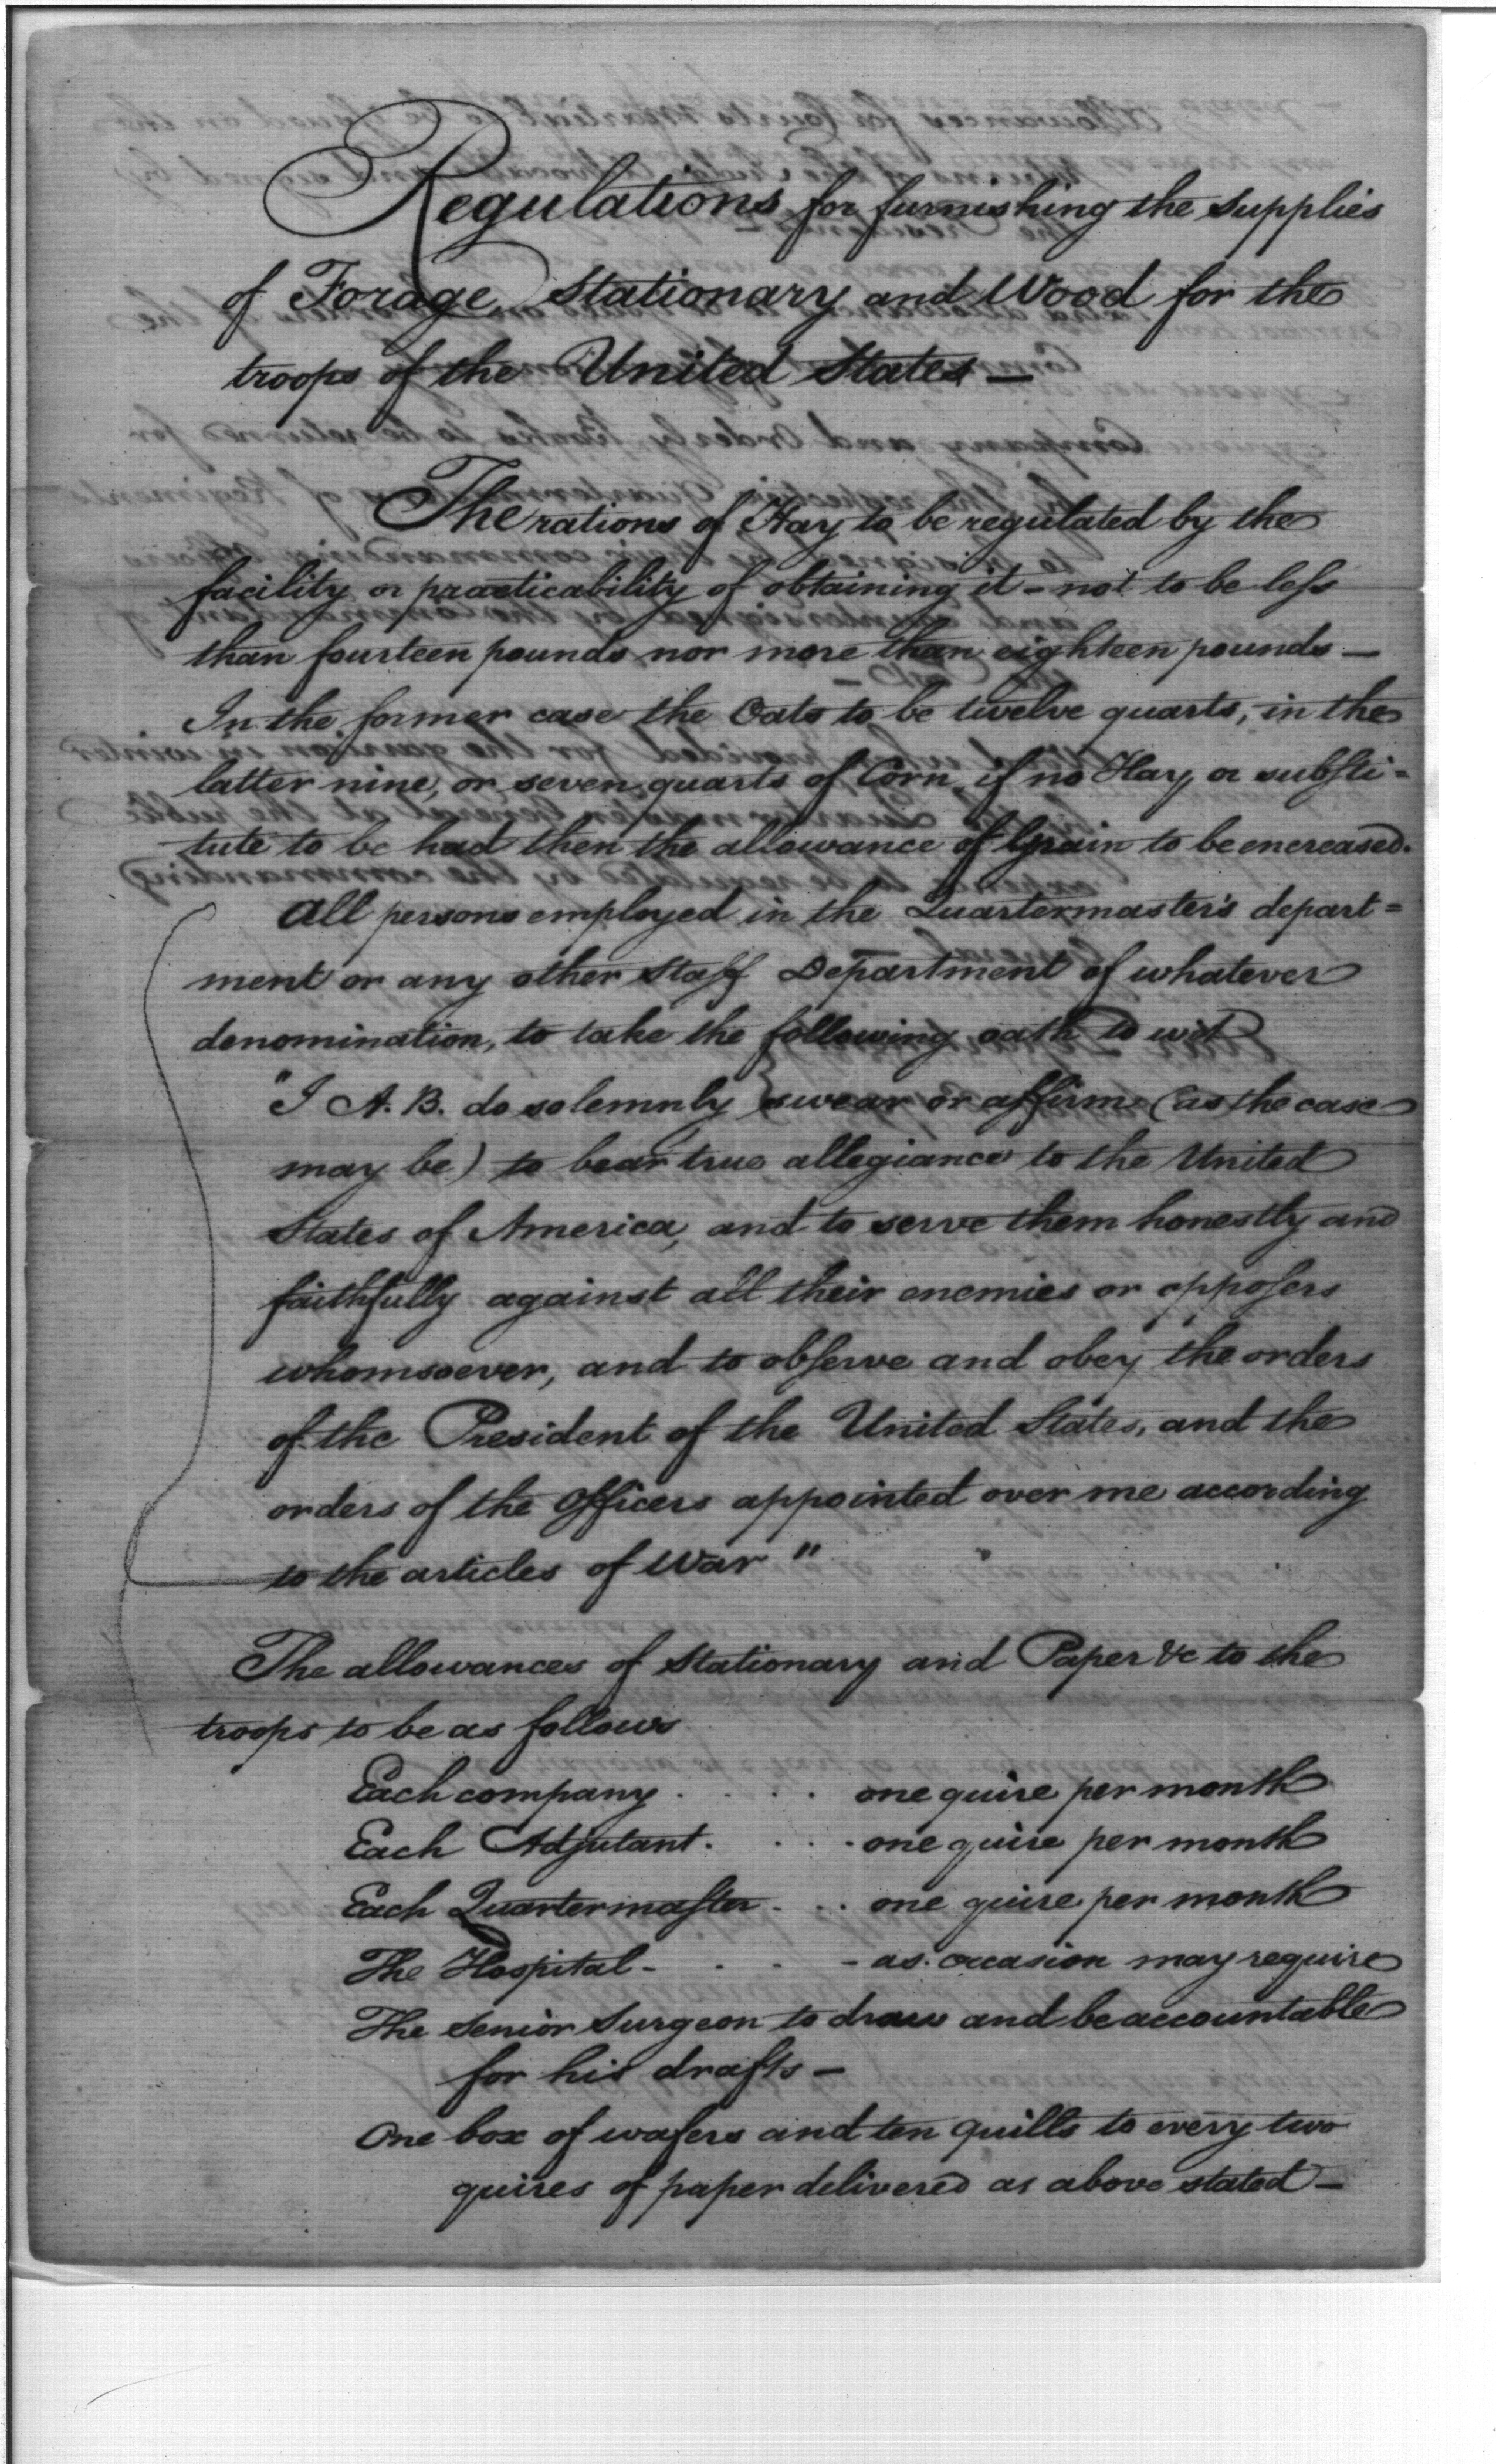 Regulations for furnishing the supplies
of Forage, Stationary and Wood for the
troops of the United States —
The rations of Hay to be regulated by the
facility or practicability of obtaining it – not to be less
than fourteen pounds nor more than eighteen pounds —
In the former case the Oats to be twelve quarts, in the
latter nine, or seven quarts of Corn, if no Hay, or substi=
tute to be had then the allowance of Grain to be encreased.
All persons employed in the Quartermaster's depart=
ment or any other staff Department of whatever
denomination, to take the following oath to wit
"I A. B. do solemnly swear or affirm (as the case
may be) to bear true allegiance to the United
States of America, and to serve them honestly and
faithfully against all their enemies or opposers
whomsoever, and to observe and obey the orders
of the President of the United States, and the
orders of the Officers appointed over me according
to the articles of War "
The allowances of Stationary and Paper &c to the
troops to be as follows
Each company . . . . one quire per month
Each Adjutant . . . . one quire per month
Each Quartermaster . . . one quire per month
The Hospital - . . - as occasion may require
The Senior Surgeon to draw and be accountable
for his drafts –
One box of wafers and ten quills to every two
quires of paper delivered as above stated –